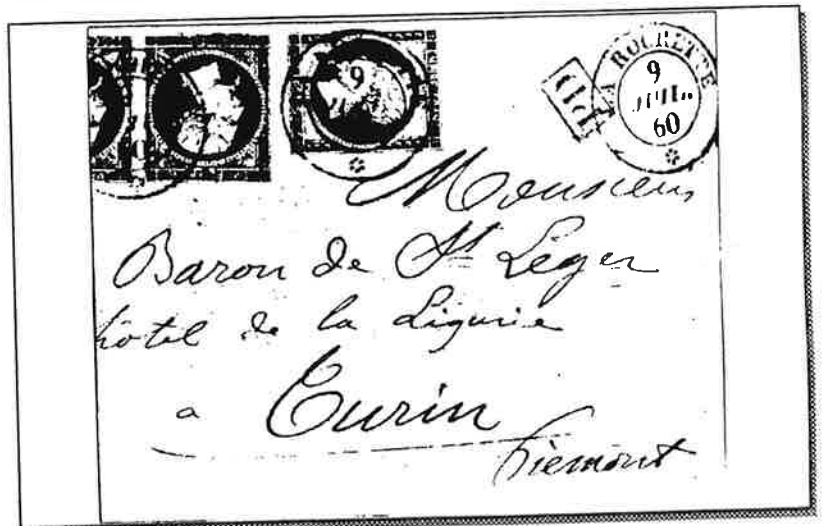 9
PD
LA ROCHETTE
9
JUIL
60
Monsieur
Baron de St Léger
hôtel de la Ligurie
a Turin
Piemont